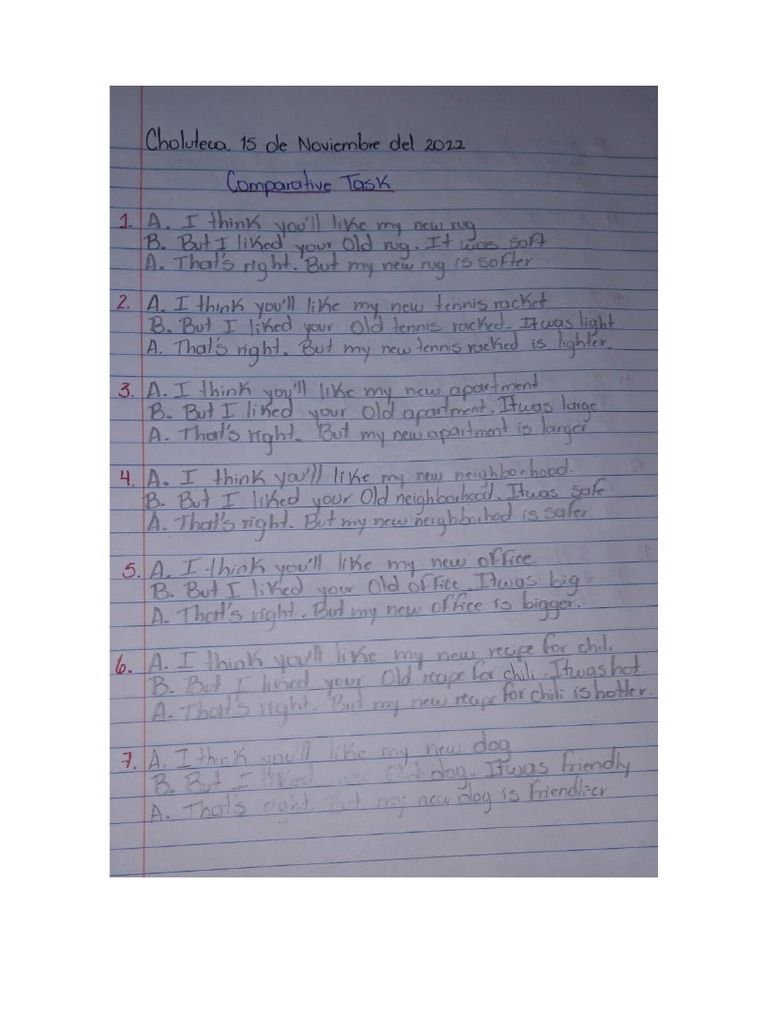 Choluteca. 15 de Noviembre del 2022
Comparative Task
1. A. I think you'll like my new rug
B. But I liked your Old rug. It was soft
A. That's right. But my new rug is softer
2. A. I think you'll like my new tennis racket
B. But I liked your Old tennis racked. It was light
A. That's right. But my new tennis racked is lighter.
3. A. I think you'll like my new apartment
B. But I liked your Old apartment. It was large
A. That's right. But my new apartment is larger
4. A. I think you'll like my new neighborhood.
B. But I liked your Old neighborhood. It was safe
A. That's right. But my new neighborhod is safer
5. A. I think you'll like my new office.
B. But I liked your Old office. It was big
A. That's right. But my new office is bigger.
6. A. I think you'll like my new recipe for chili.
B. But I liked your Old recipe for chili. It was hot
A. That's right. But my new recipe for chili is hotter.
7. A. I think you'll like my new dog
B. But I liked your Old dog. It was friendly
A. That's right. But my new dog is friendlier